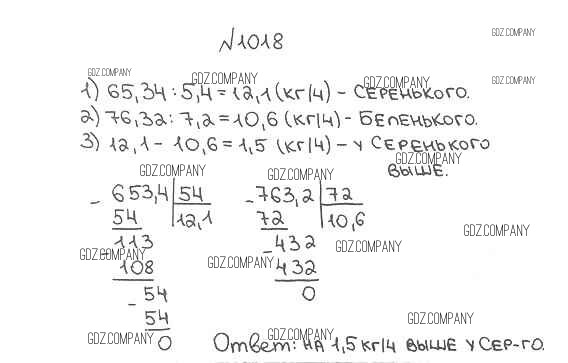 №1018
GDZ.COMPANY
GDZ.COMPANY GDZ.COMPANY GDZ.COMPANY GDZ.COMPANY
1) 65,34 : 5,4 = 12,1 (кг/ч) – СЕРЕНЬКОГО.
2) 76,32 : 7,2 = 10,6 (кг/ч) – БЕЛЕНЬКОГО.
3) 12,1 – 10,6 = 1,5 (кг/ч) – у СЕРЕНЬКОГО
GDZ.COMPANY
ВЫШЕ.
GDZ.COMPANY GDZ.COMPANY
- 653,4 54 - 763,2 72
54 12,1 72 10,6
GDZ.COMPANY
113 - 432 GDZ.COMPANY
GDZ.COMPANY
108 GDZ.COMPANY 432
- 54 0
54 GDZ.COMPANY
GDZ.COMPANY 0 GDZ.COMPANY
Ответ: НА 1,5 кг/ч ВЫШЕ у СЕР-ГО.